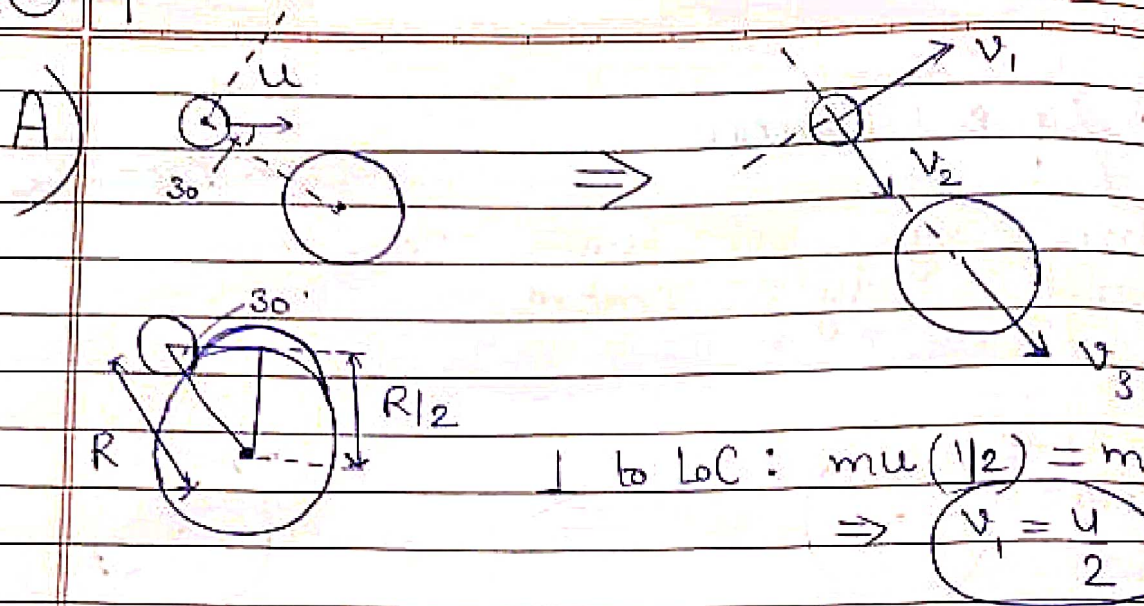 A)
u
30°
⇒
v₁
v₂
v₃
30°
R
R/2
⊥ to LoC : mu(1/2) = m
⇒ v₁ = u/2